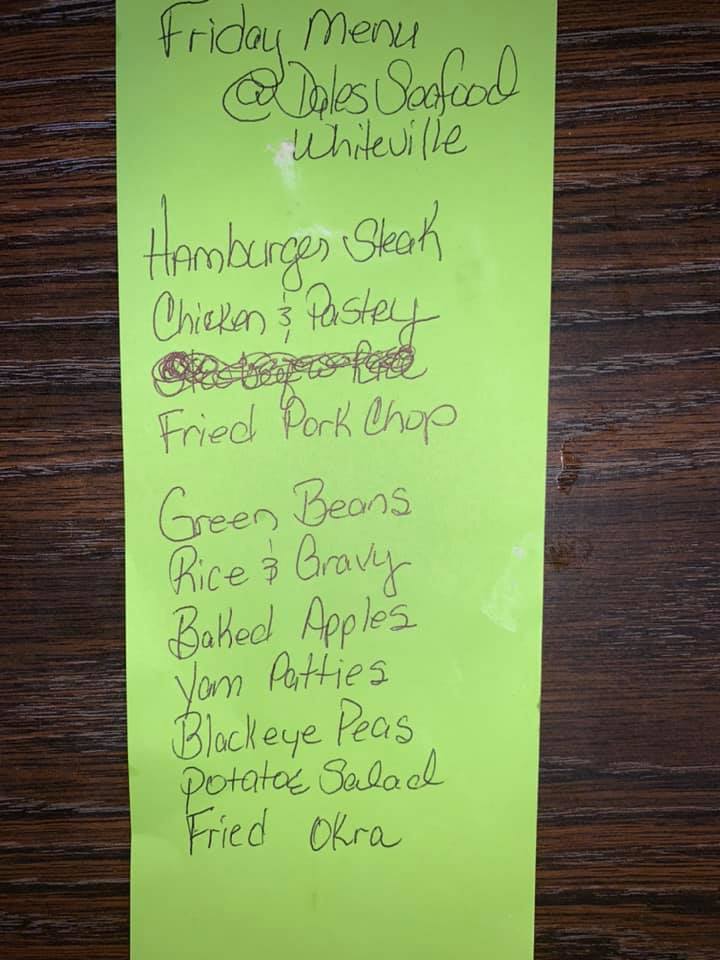 Friday Menu
@ Dales Seafood
Whiteville
Hamburger Steak
Chicken & Pastry
Fried Pork Chop
Green Beans
Rice & Gravy
Baked Apples
Yam Patties
Blackeye Peas
Potatoe Salad
Fried Okra